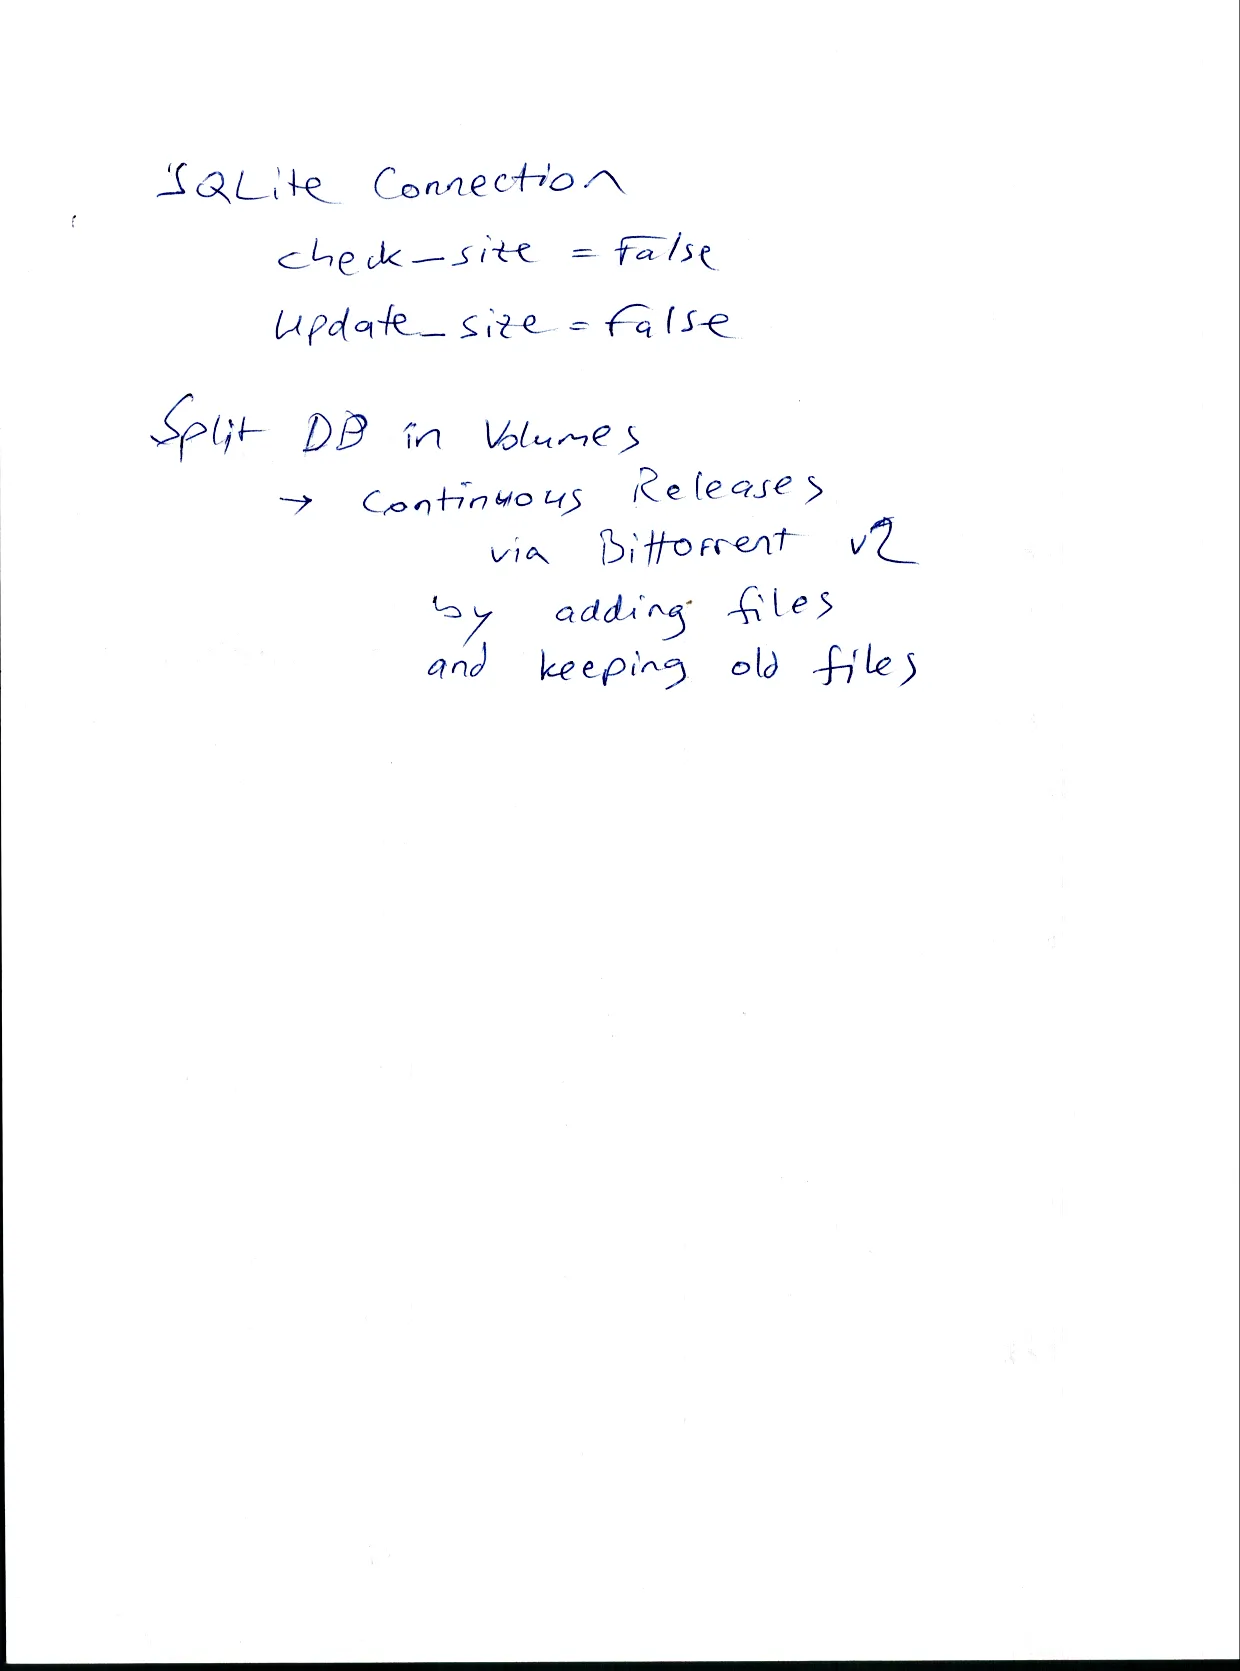 SQLite Connection
check_size = False
update_size = False
Split DB in Volumes
→ Continuous Releases
via Bittorrent v2
by adding files
and keeping old files